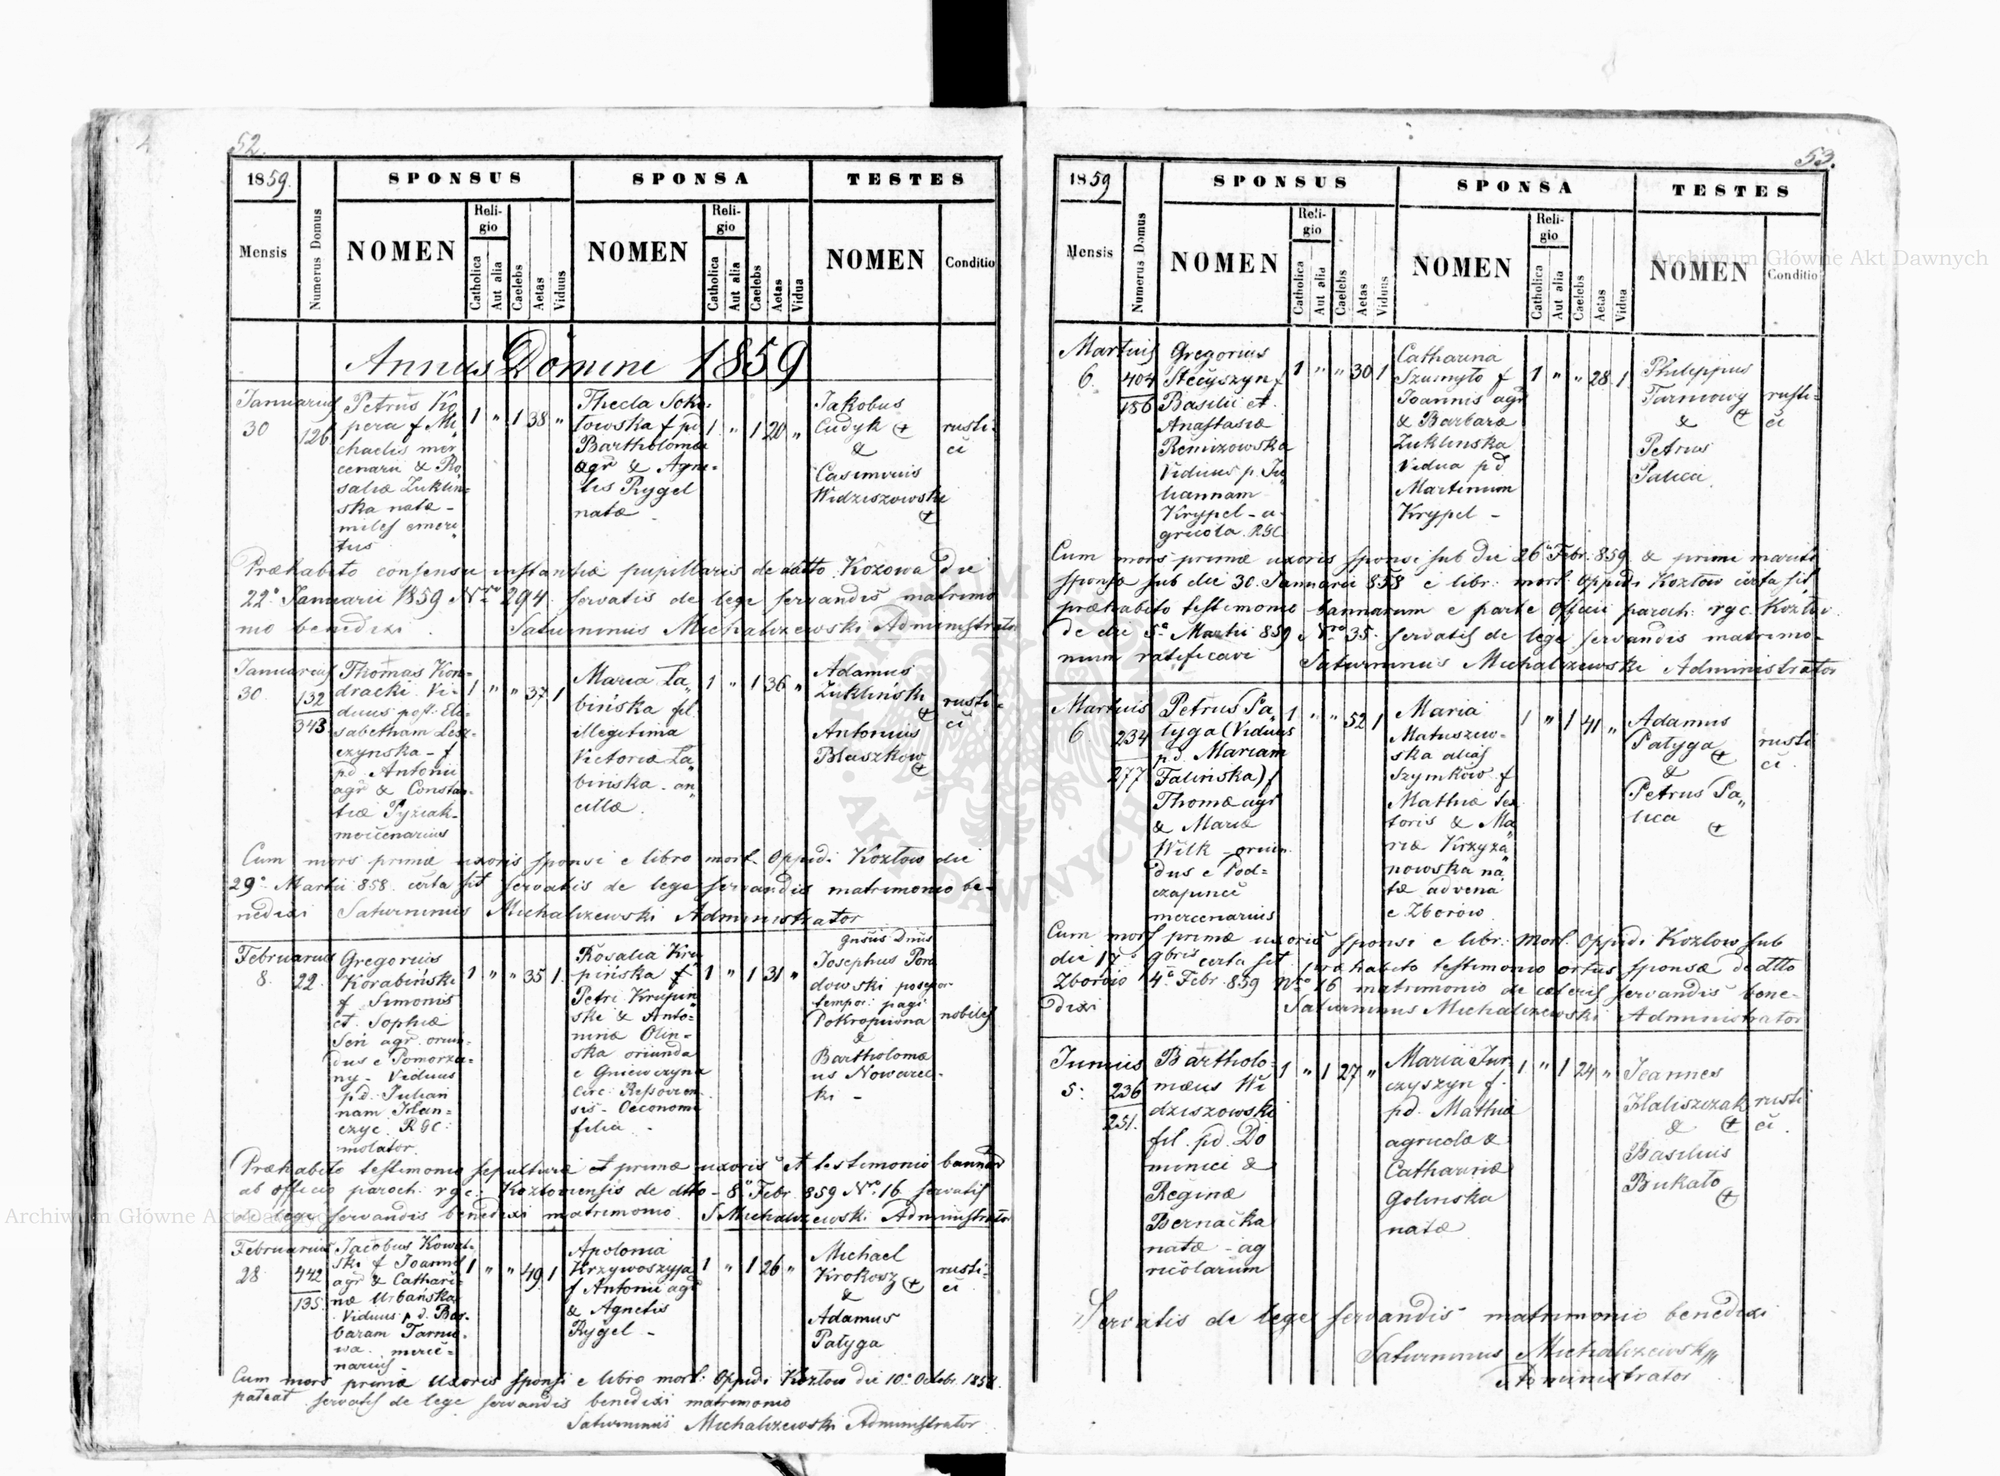 52.
1859.
SPONSUS
SPONSA
TESTES
Mensis
Numerus Domus
NOMEN
Religio
Catholica
Aut alia
Caelebs
Aetas
Viduus
NOMEN
Religio
Catholica
Aut alia
Caelebs
Aetas
Vidua
NOMEN
Conditio
Annus Domini 1859
Januarius
30
126
Petrus Ko
pera f Mi
chaelis mer
cenarii & Ro
saliæ Zuklin=
ska natæ -
miles emeri
tus
1 " 1 38 "
Thecla Soko=
towska f pd
Bartholomæi
agr & Agne=
tis Rygel
natæ
1 " 1 20 "
Jakobus
Cudyk +
&
Casimirus
Widziszowski
+
rusti=
ci
Præhabito consensu instantiæ pupillaris de dtto Kozowa die
22a Januarii 1859 Nro 294. servatis de lege servandis matrimo
nio benedixi. Saturninus Michalizewski Administrator
Januarius
30.
132
343
Thomas Kon=
dracki. Vi=
duus post. Eli=
sabetham Lesz=
czynska - f
pd. Antonii
agr & Constan=
tiæ Pyziak
mercenarius
1 " " 37 1
Maria Ła
bińska fil
illegitima
Victoriæ Ła
bińska - an
cillæ.
1 " 1 36 "
Adamus
Zukliński
+
Antonius
Błaszkow
+
rusti=
ci
Cum mors primæ uxoris sponsi e libro mort. Oppidi Kozłow die
29a Martii 858. certa sit servatis de lege servandis matrimonio be=
nedixi Saturninus Michalizewski Administrator
Februarius
8.
22.
Gregorius
Korabiński
f Simonis
et Sophiæ
Seń agr. oriun=
dus e Pomorza=
ny - Viduus
p d. Julian
nam Hlan=
czyc. RGC.
molator.
1 " " 35 1.
Rosalia Kru
pińska f
Petri Krupin
ski & Anto=
niniæ Olin=
ska oriunda
e Gniewczyna
circ. Ressovien
sis - Oeconomi
filia -
1 " 1 31 "
gnsus Dnus
Josephus Poro
dowski possesor
tempor: pagi
Pokropiwna
&
Bartholomæ
us Nowarec=
ki -
nobiles
Præhabito testimonio sepulturæ et primæ uxoris et testimonio bannor
ab officio paroch. rgc: Kozłoviensis de dtto - 8a Febr. 859 Nro. 16 servatis
de lege servandis benedixi matrimonio. S Michalizewski Administrator
Februarius
28.
442
135
Jacobus Kowal=
ski f Joannis
agr & Cathari=
næ Urbańska
Viduus p d. Bar=
baram Tarno=
wa. merce=
narius.
1 " " 49 1
Apolonia
Krzywoszyja
f Antonii agr
& Agnetis
Rygel -
1 " 1 26 "
Michael
Krokosz +
&
Adamus
Patyga
rusti=
ci
Cum mors primæ uxoris sponsi e libro mort: Oppidi Kozłow die 10a Octobr. 1858.
pateat servatis de lege servandis benedixi matrimonio
Saturninus Michalizewski Administrator
53.
1859
SPONSUS
SPONSA
TESTES
Mensis
Numerus Domus
NOMEN
Religio
Catholica
Aut alia
Caelebs
Aetas
Viduus
NOMEN
Religio
Catholica
Aut alia
Caelebs
Aetas
Vidua
NOMEN
Conditio
Martius
6.
404
156
Gregorius
Stecyszyn f
Basilii et
Anastasiæ
Remizowska
Viduus p. Ju
liannam
Krypel - a=
gricola. RGC
1 " " 30 1
Catharina
Szumyło f
Joannis agr
& Barbaræ
Zuklinska
Vidua pd
Martinum
Krypel -
1 " " 28 1
Philippus
Tarnowy
& +
Petrus
Palica.
rusti=
ci
Cum mors primæ uxoris sponsi sub die 26a Febr. 859. & primi mariti
sponsæ sub die 30. Januarii 858 e libr: mort. Oppidi Kozłow certa sit
præhabito testimonio bannorum e parte Officii paroch: rgc. Kozłov.
de die 5a Martii 859 Nro 35. servatis de lege servandis matrimo=
nium ratificavi Saturninus Michalizewski Administrator
Martius
6.
234
277
Petrus Pa
tyga (Viduus
p d. Mariam
Falińska) f
Thomæ agr
& Mariæ
Wilk - oriun
dus e Pod=
czapince
mercenarius
1 " " 52 1
Maria
Matuszew=
ska alias
Szymków f
Mathiæ Sar
toris & Ma
riæ Krzyża
nowska na
tæ advena
e Zborow.
1 " 1 41 "
Adamus
Patyga
& +
Petrus Pa
lica
+
rusti
ci.
Cum mors primæ uxoris sponsi e libr: Mort. Oppidi Kozłow sub
die 17a 9bris certa sit, præhabito testimonio ortus sponsæ de dtto
Zborow 4a Febr. 859 Nro 16 matrimonio de cæteris servandis bene=
dixi Saturninus Michalizewski Administrator
Junius
5.
236
251.
Bartholo=
mæus Wi
dziszowski
fil. pd. Do
minici &
Reginæ
Bernacka
natæ - ag
ricolarum
1 " 1 27 "
Maria Jur=
czyszyn f.
pd. Mathiæ
agricolæ &
Catharinæ
Golinska
natæ
1 " 1 24 "
Joannes
Haliszczak
& +
Basilius
Bukato
+
rusti
ci.
Servatis de lege servandis matrimonio benedixi
Saturninus Michalizewski
Administrator
Archiwum Główne Akt Dawnych
Archiwum Główne Akt Dawnych
ARCHIWUM GŁÓWNE AKT DAWNYCH